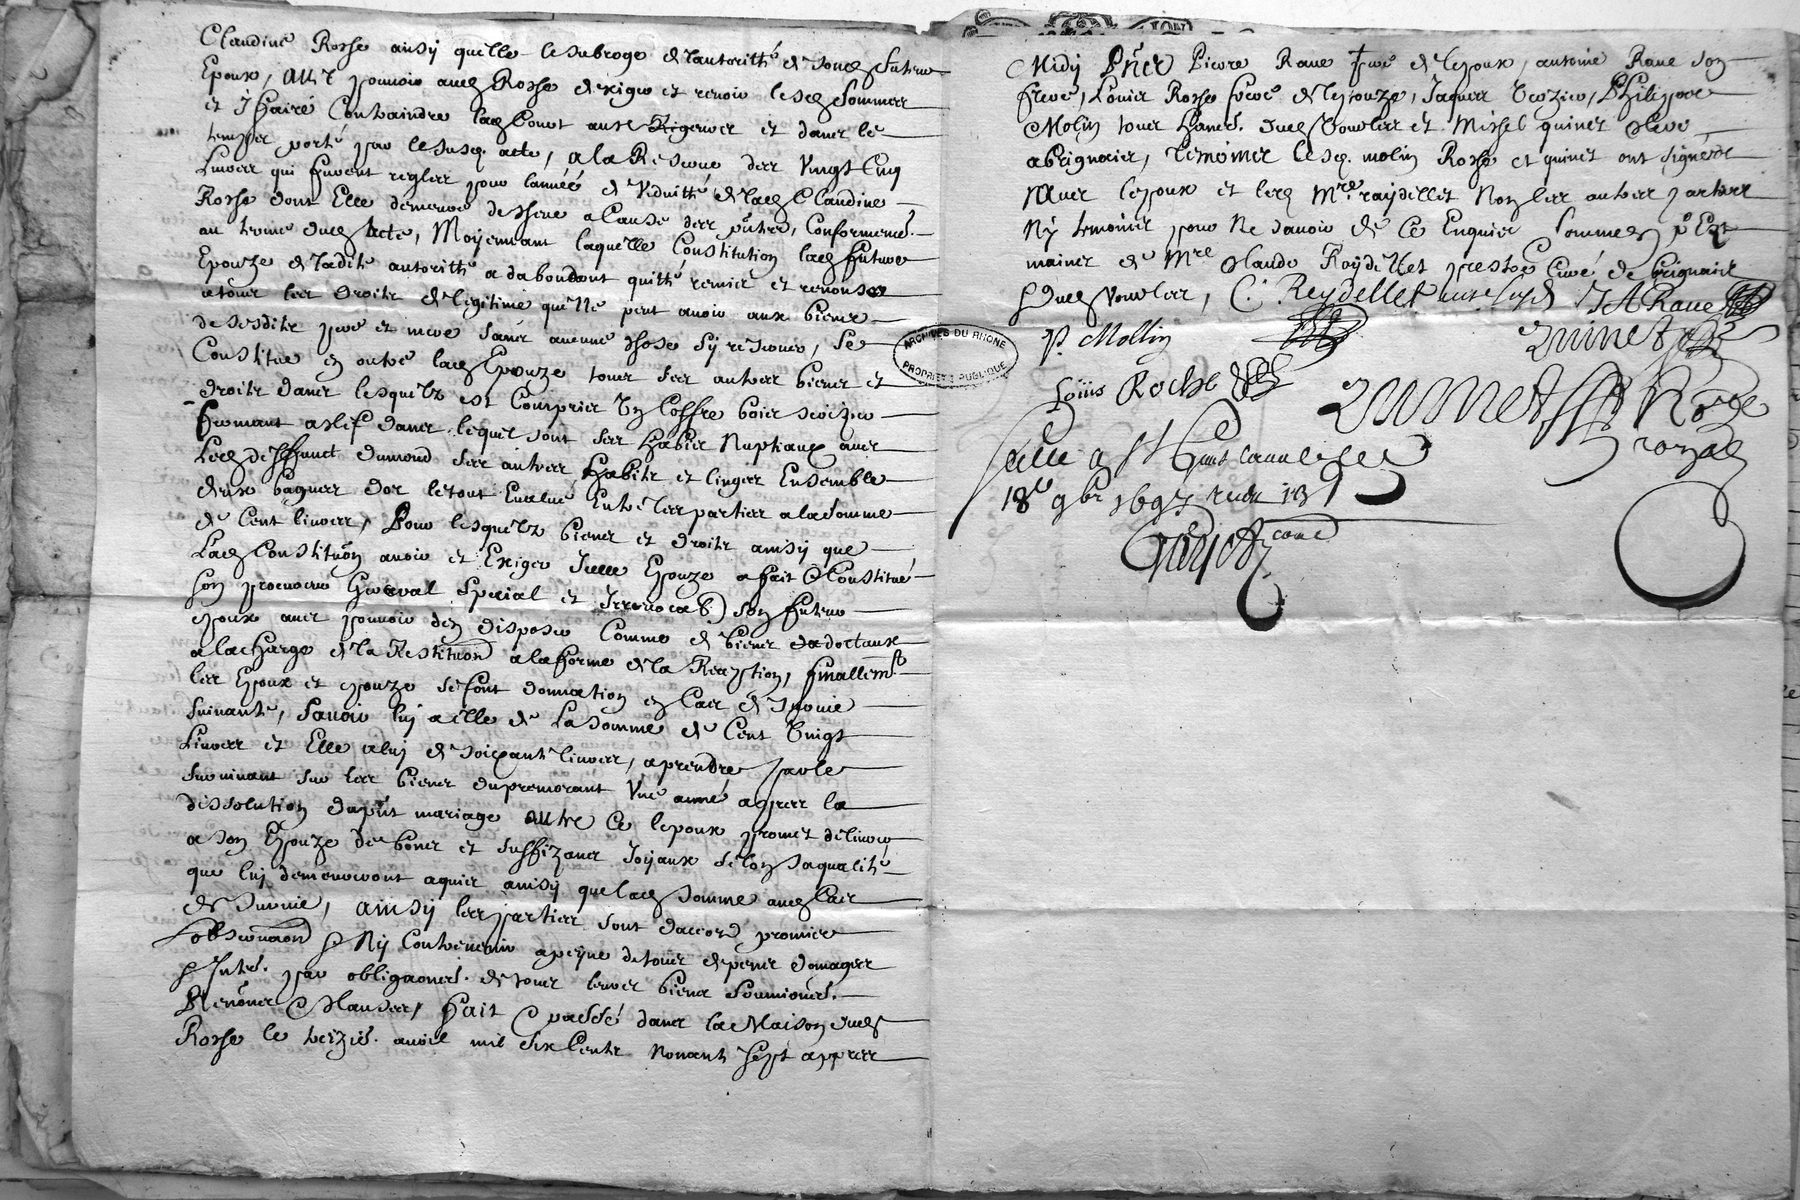 Claudine Rosse ainsy quelle le subroge de lautoritté de sond futeur
Epoux, avec pouvoir aud Rosse dexiger et recevoir lesd sommes
et y faire Contraindre lad aux Rigeurs et dans le
temps porté par le susd. acte, a la Reserve des vingt Cinq
Livres qui furent reglees pour lannée de viduitté de lad Claudine
Rosse dont Elle demeure a Cause des Conformemt.
au terme dud acte, Moyennant laquelle Constitution lad future
Epouze de ladite autoritté a dabondant quitté remis et renonse
a tous les droits de legitime quelle peut avoir aux biens
de sesdits pere et mere sans aucune chose sy reserver, se
Constitue en outre lad Epouze tous ses autres biens et
droits dans lesquelz est Compris un Coffre bois
fermant a clef dans lequel sont ses habis Nuptiaux avec
ses autres habits et linges Ensemble
deux bagues dor le tout Evalué Entre les parties a la somme
de Cent livres, Pour lesquelz biens et droits ainsy que
lad Constituõn avoir et Exiger Icelle Epouze a fait & Constitué
son procureur General special et Irrevocab son futeur
epoux avec pouvoir den disposer Comme de biens dadoctaux
a la charge de la Restituõn a la forme de la Reception, finallemt
les Epoux et epouze se font donnation en Cas de survie
suivante, savoir luy a elle de La somme de Cent vingt
Livres et Elle a luy de soixante livres, a prendre par le
survivant sur les biens du premorant Une année apres la
dissolution dupñt mariage outre Ce lepoux promet delivrer
a son Epouze de bones et suffizanes Joyaux selon sa qualité
que luy demeureront aquis ainsy que lad somme aud Cas
de survie, ainsy les parties sont daccord promis
Lobservaõn & Ny Contrevenir a peyne de tous depens domages
& Intes. par obligaõnes. de tous leurs biens soumiones.
Renõnes & Clauses, fait & passé dans la Maison dud
Rosse le treizie. avril mil six Cents nonante sept appres
Midy Pñts Pierre Rave frere de lepoux, antoine Rave son
frere, Louis Rosse frere de lepouze, Jaques Philippe
Molin tous habts. dud Vourles et Michel quinet Clerc
a brignais, temoins lesd. molin Rosse et quinet ont signés
Avec lepoux et led Mre. raydellet Non les autres parties
Ny temoins pour Ne savoir de Ce Enquis sommes
mains de Mre Claude Raydellet prestre Curé de brignais
& dud Vourles, C. Reydellet curé J A Rave
P. Mollin quinet
Loüis Roche
quinet Nore
royal
Scelle a St Genis Laval le
18e 9bre 1697 recu